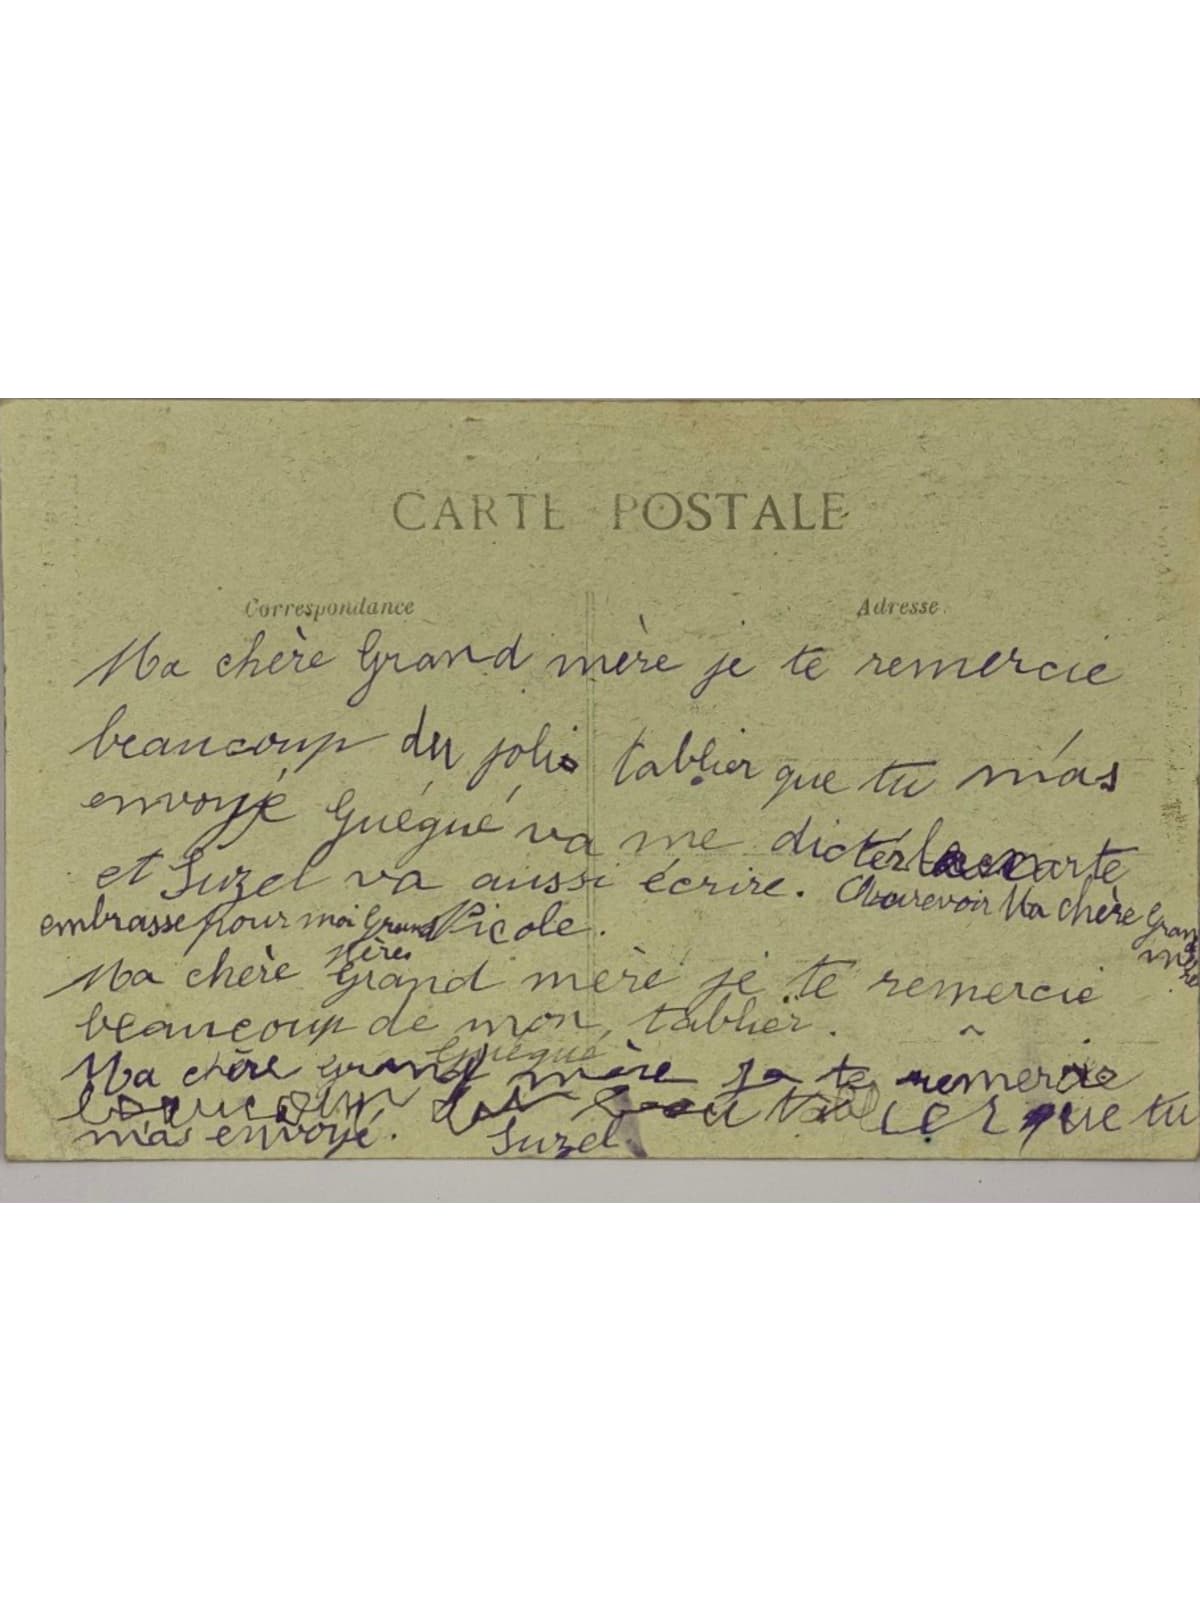 CARTE POSTALE
Correspondance
Adresse
Ma chère Grand mère je te remercie
beaucoup du joli tablier que tu m'as
envoyé Guégué va me dicter la carte
et Suzel va aussi écrire. Ma chère Grand mère
embrasse pour moi Grand Mère Picole.
Ma chère Grand mère je te remercie
beaucoup de mon tablier.
Guégué
Ma chère grand mère je te remercie
du tablier que tu
m'as envoyé. Suzel